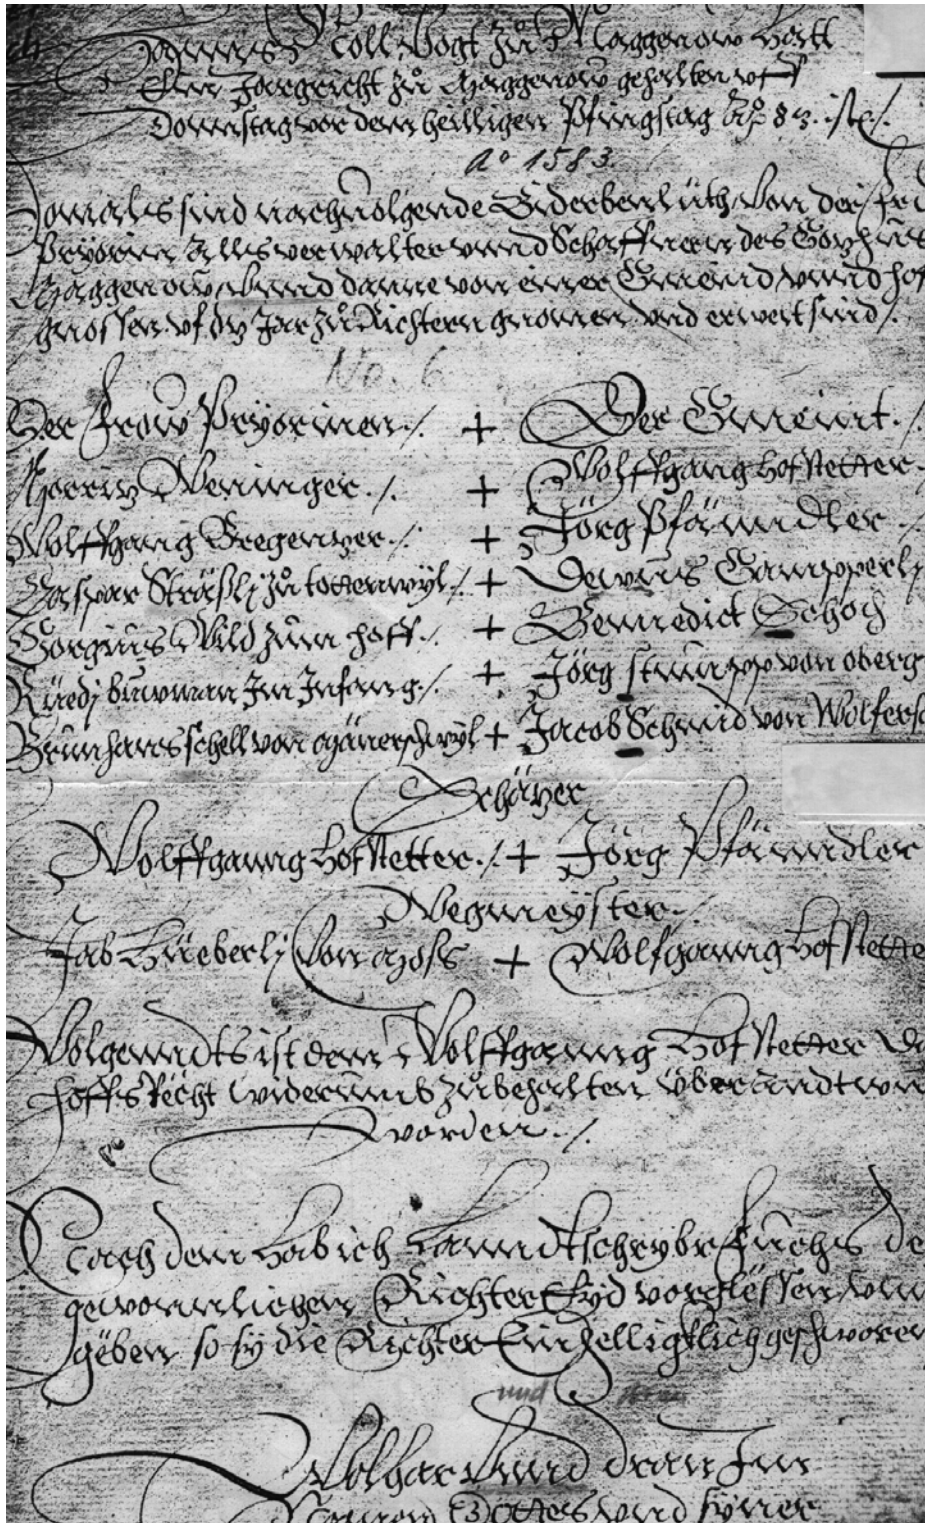 Vogt zů Maggenow hatt
Ein Jargericht zů Maggenow gehalten vff
Donnstag vor dem heilligen Pfingstag Aº 83. ist ./.
Aº 1583.
Domals sind nachuolgende Biderben lüth, von der
Pryorin Alls verwalter vnnd Schaffneren des Gozhus
Maggenow, vnnd danne von einer Gmeind vnnd hof
gnossen vf dz Jar zů Richtern gnomen vnd erwelt sind ./.
No. 6
Der frow Pryorinen ./. + Der Gmeint ./.
Weninger ./. + Wolffgang Hofstetter.
Wolffgang Bregenzer ./. + Jörg Pfändler ./.
Caspar Sträßlj zů totterwyl ./. + Gampperlj
Görgius Wild zum hoff ./. + Bennedict Schoch
Rüedj buwman Im Infang ./. + Jörg stumpp von oberg
hans schell von + Jacob Schmid von Wolfers
Schäzer
Wolffganng Hofstetter ./. + Jörg Pfänndler
Wegmeyster ./.
Jab Hüeberlj von Moss + Wolfganng Hofstette
Volgendts ist dem Wolffganng Hofstetter Da
hoffs Recht widerumb zů behalten überandtwu
worden ./.
Nach dem Hab ich Lanndtschryber fuchs de
gewonnlichen Richter Eyd vorgelessen vnn
geben so sy die Richter Einhelligklich geschworen
und
Wolhar vnnd dran Im
Namen Gottes vnd syner